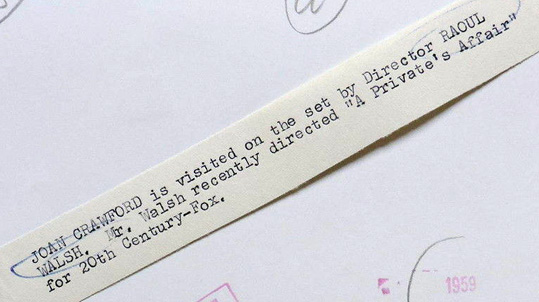 JOAN CRAWFORD is visited on the set by Director RAOUL
WALSH. Mr. Walsh recently directed "A Private's Affair"
for 20th Century-Fox.
1959